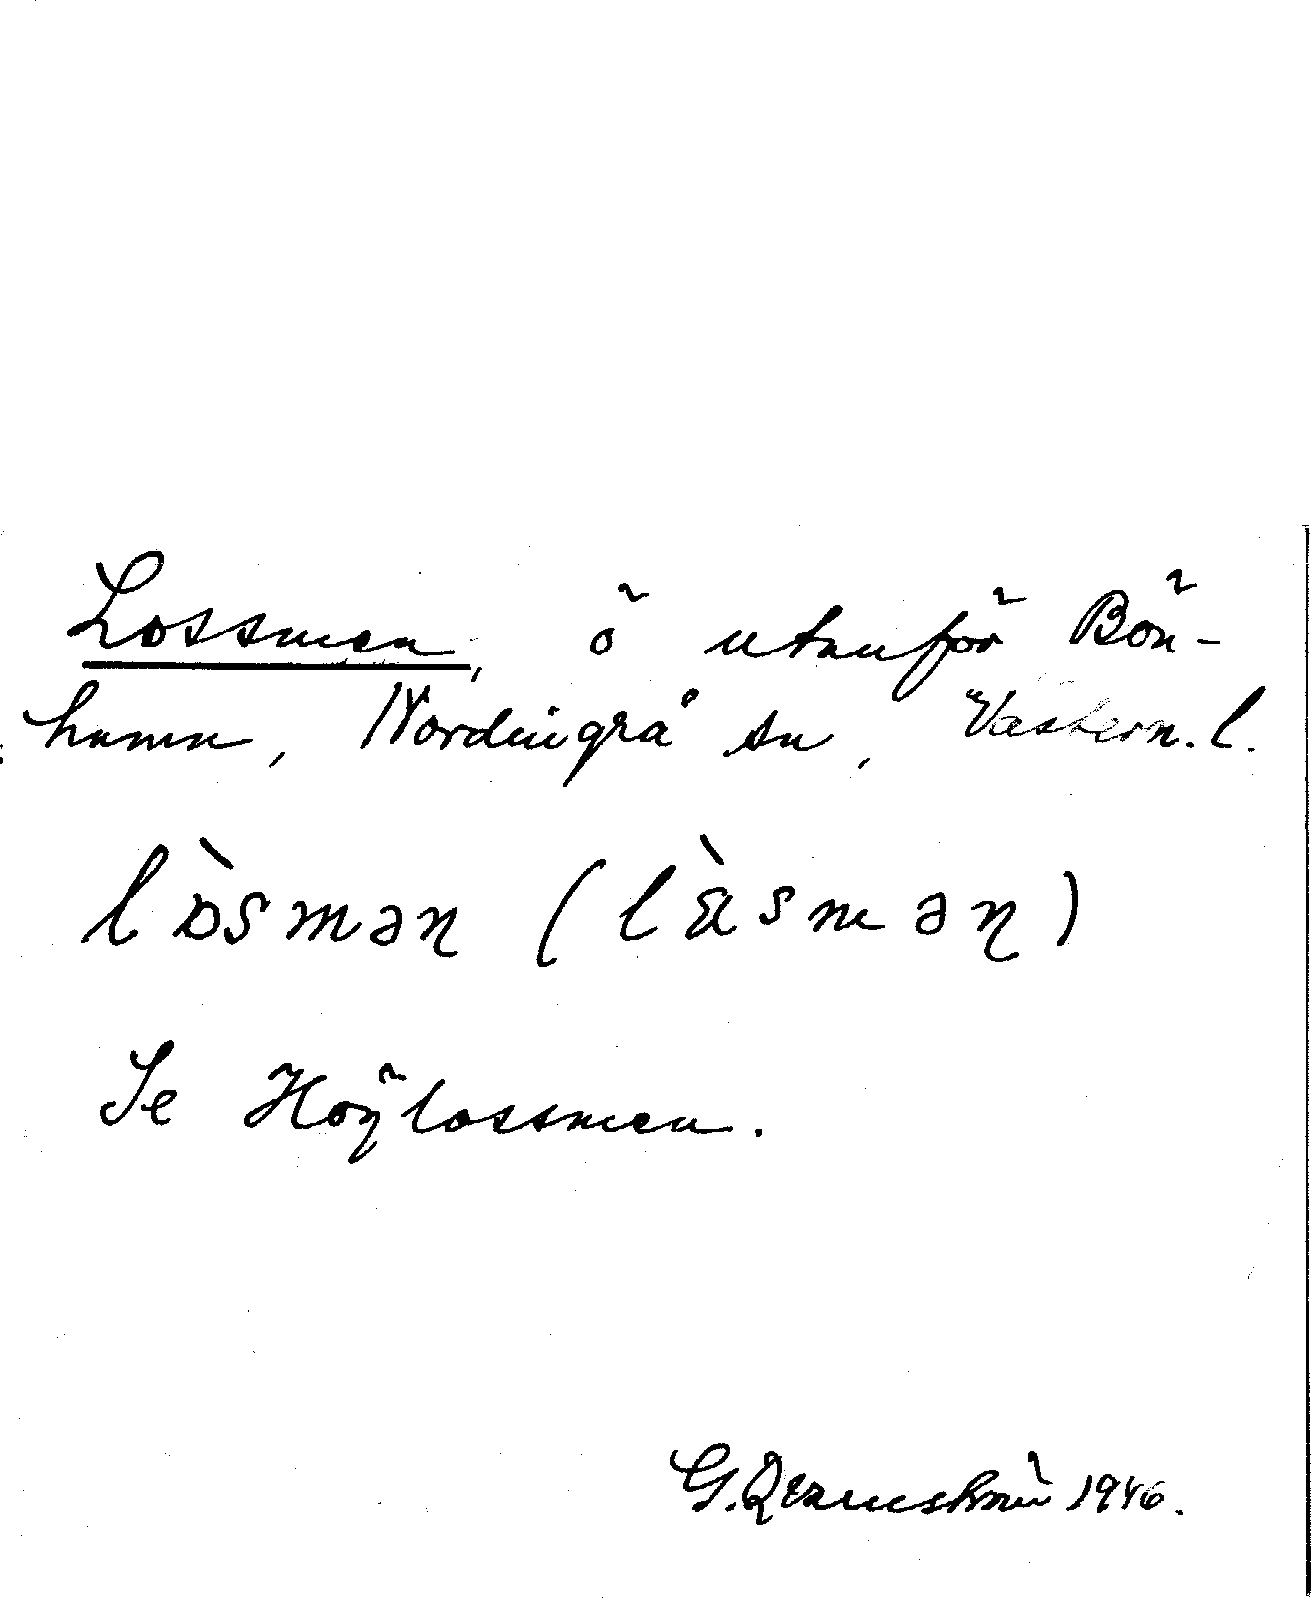 Lossmen, ö utanför Bön-
hamn, Nordingrå sn, Västern. l.
lòsmən (lὰsmən)
Se Höglossmen.
G. Qvarnström 1946.